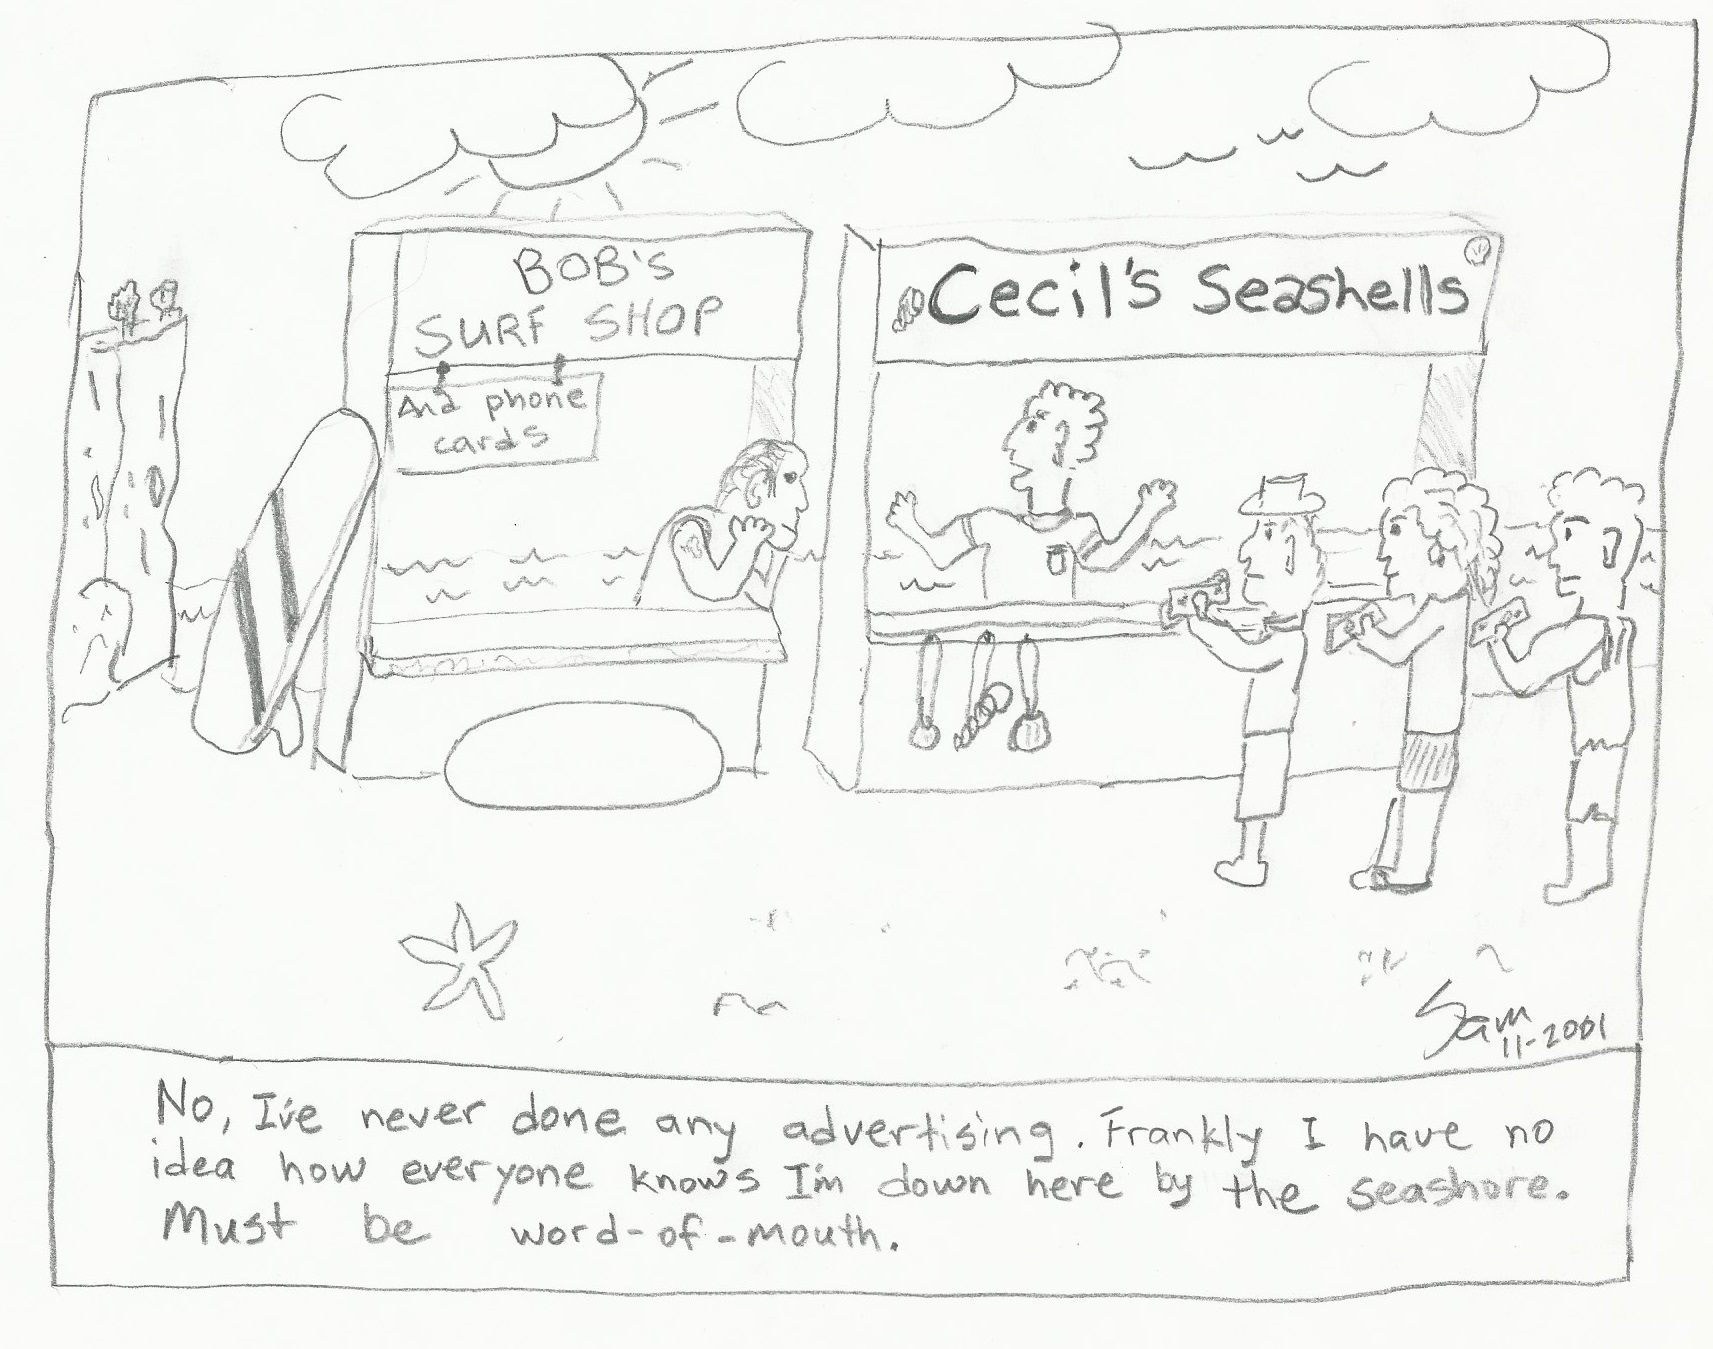 BOB's
SURF SHOP
And phone
cards
Cecil's Seashells
Sam
11-2001
No, I've never done any advertising. Frankly I have no
idea how everyone knows I'm down here by the seashore.
Must be word-of-mouth.